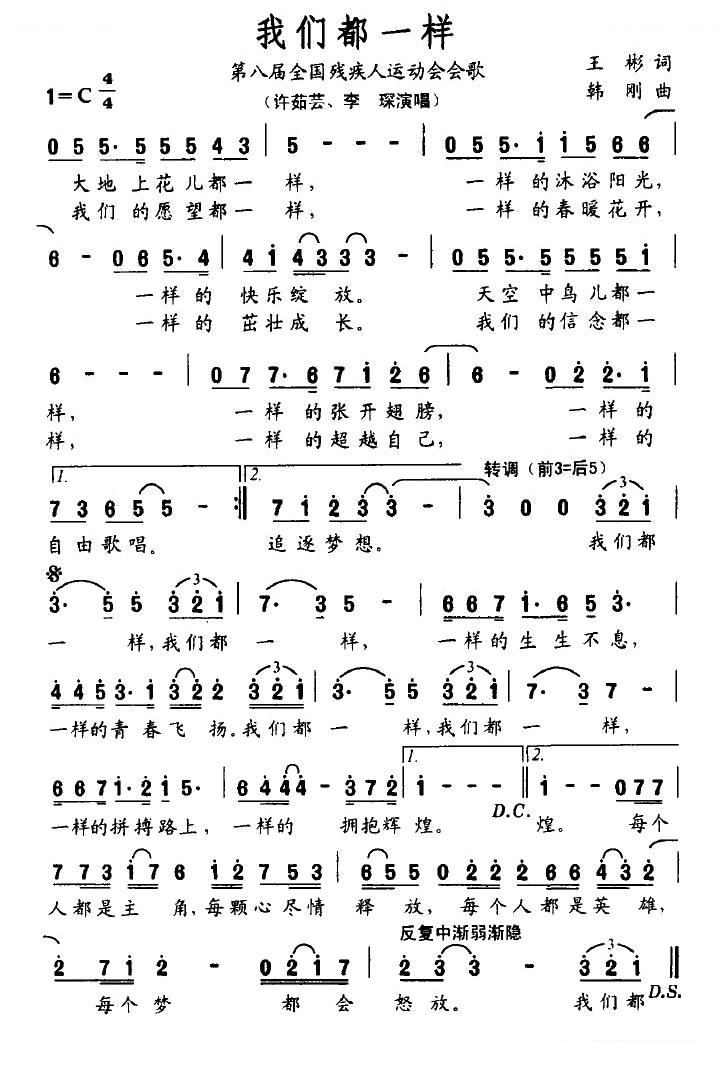 我们都一样
第八届全国残疾人运动会会歌
王 彬 词
1=C 4/4
（许茹芸、李 琛演唱）
韩 刚 曲
0 5 5· 5 5 5 4 3 | 5 - - - | 0 5 5· i i 5 6 6 |
大地 上花儿都一 样， 一样 的沐浴阳光，
我们 的愿望都一 样， 一样 的春暖花开，
6 - 0 6 5· 4 | 4 i 4 3 3 3 - | 0 5 5· 5 5 5 5 i |
一样的 快乐绽 放。 天空 中鸟儿都一
一样的 茁壮成 长。 我们 的信念都一
6 - - - | 0 7 7· 6 7 i 2 6 | 6 - 0 2 2· i |
样， 一样 的张开翅膀， 一样的
样， 一样 的超越自己， 一样的
1. 2. 转调（前3=后5）
7 3 6 5 5 - :| 7 i 2 3 3 - | 3 0 0 3 2 i |
自由歌唱。 追逐梦想。 我们都
3· 5 5 3 2 i | 7· 3 5 - | 6 6 7 i· 6 5 3· |
一 样，我们都 一 样， 一样的生生不息，
4 4 5 3· i 3 2 2 3 2 i | 3· 5 5 3 2 i | 7· 3 7 - |
一样的青春飞 扬。我们都 一 样，我们都 一 样，
1. 2.
6 6 7 i· 2 i 5· | 6 4 4 4 - 3 7 2 | i - - - || i - - 0 7 7 |
一样的拼搏路上， 一样的 拥抱辉 煌。 D.C. 煌。 每个
7 7 3 i 7 6 i 2 7 5 3 | 6 5 5 0 2 2 2 6 6 4 3 2 |
人都是主 角，每颗心尽情 释 放， 每个人都是英 雄，
反复中渐弱渐隐
2 7 i 2 - 0 2 i 7 | 2 3 3 - 3 2 i ||
每个梦 都 会 怒放。 我们都 D.S.